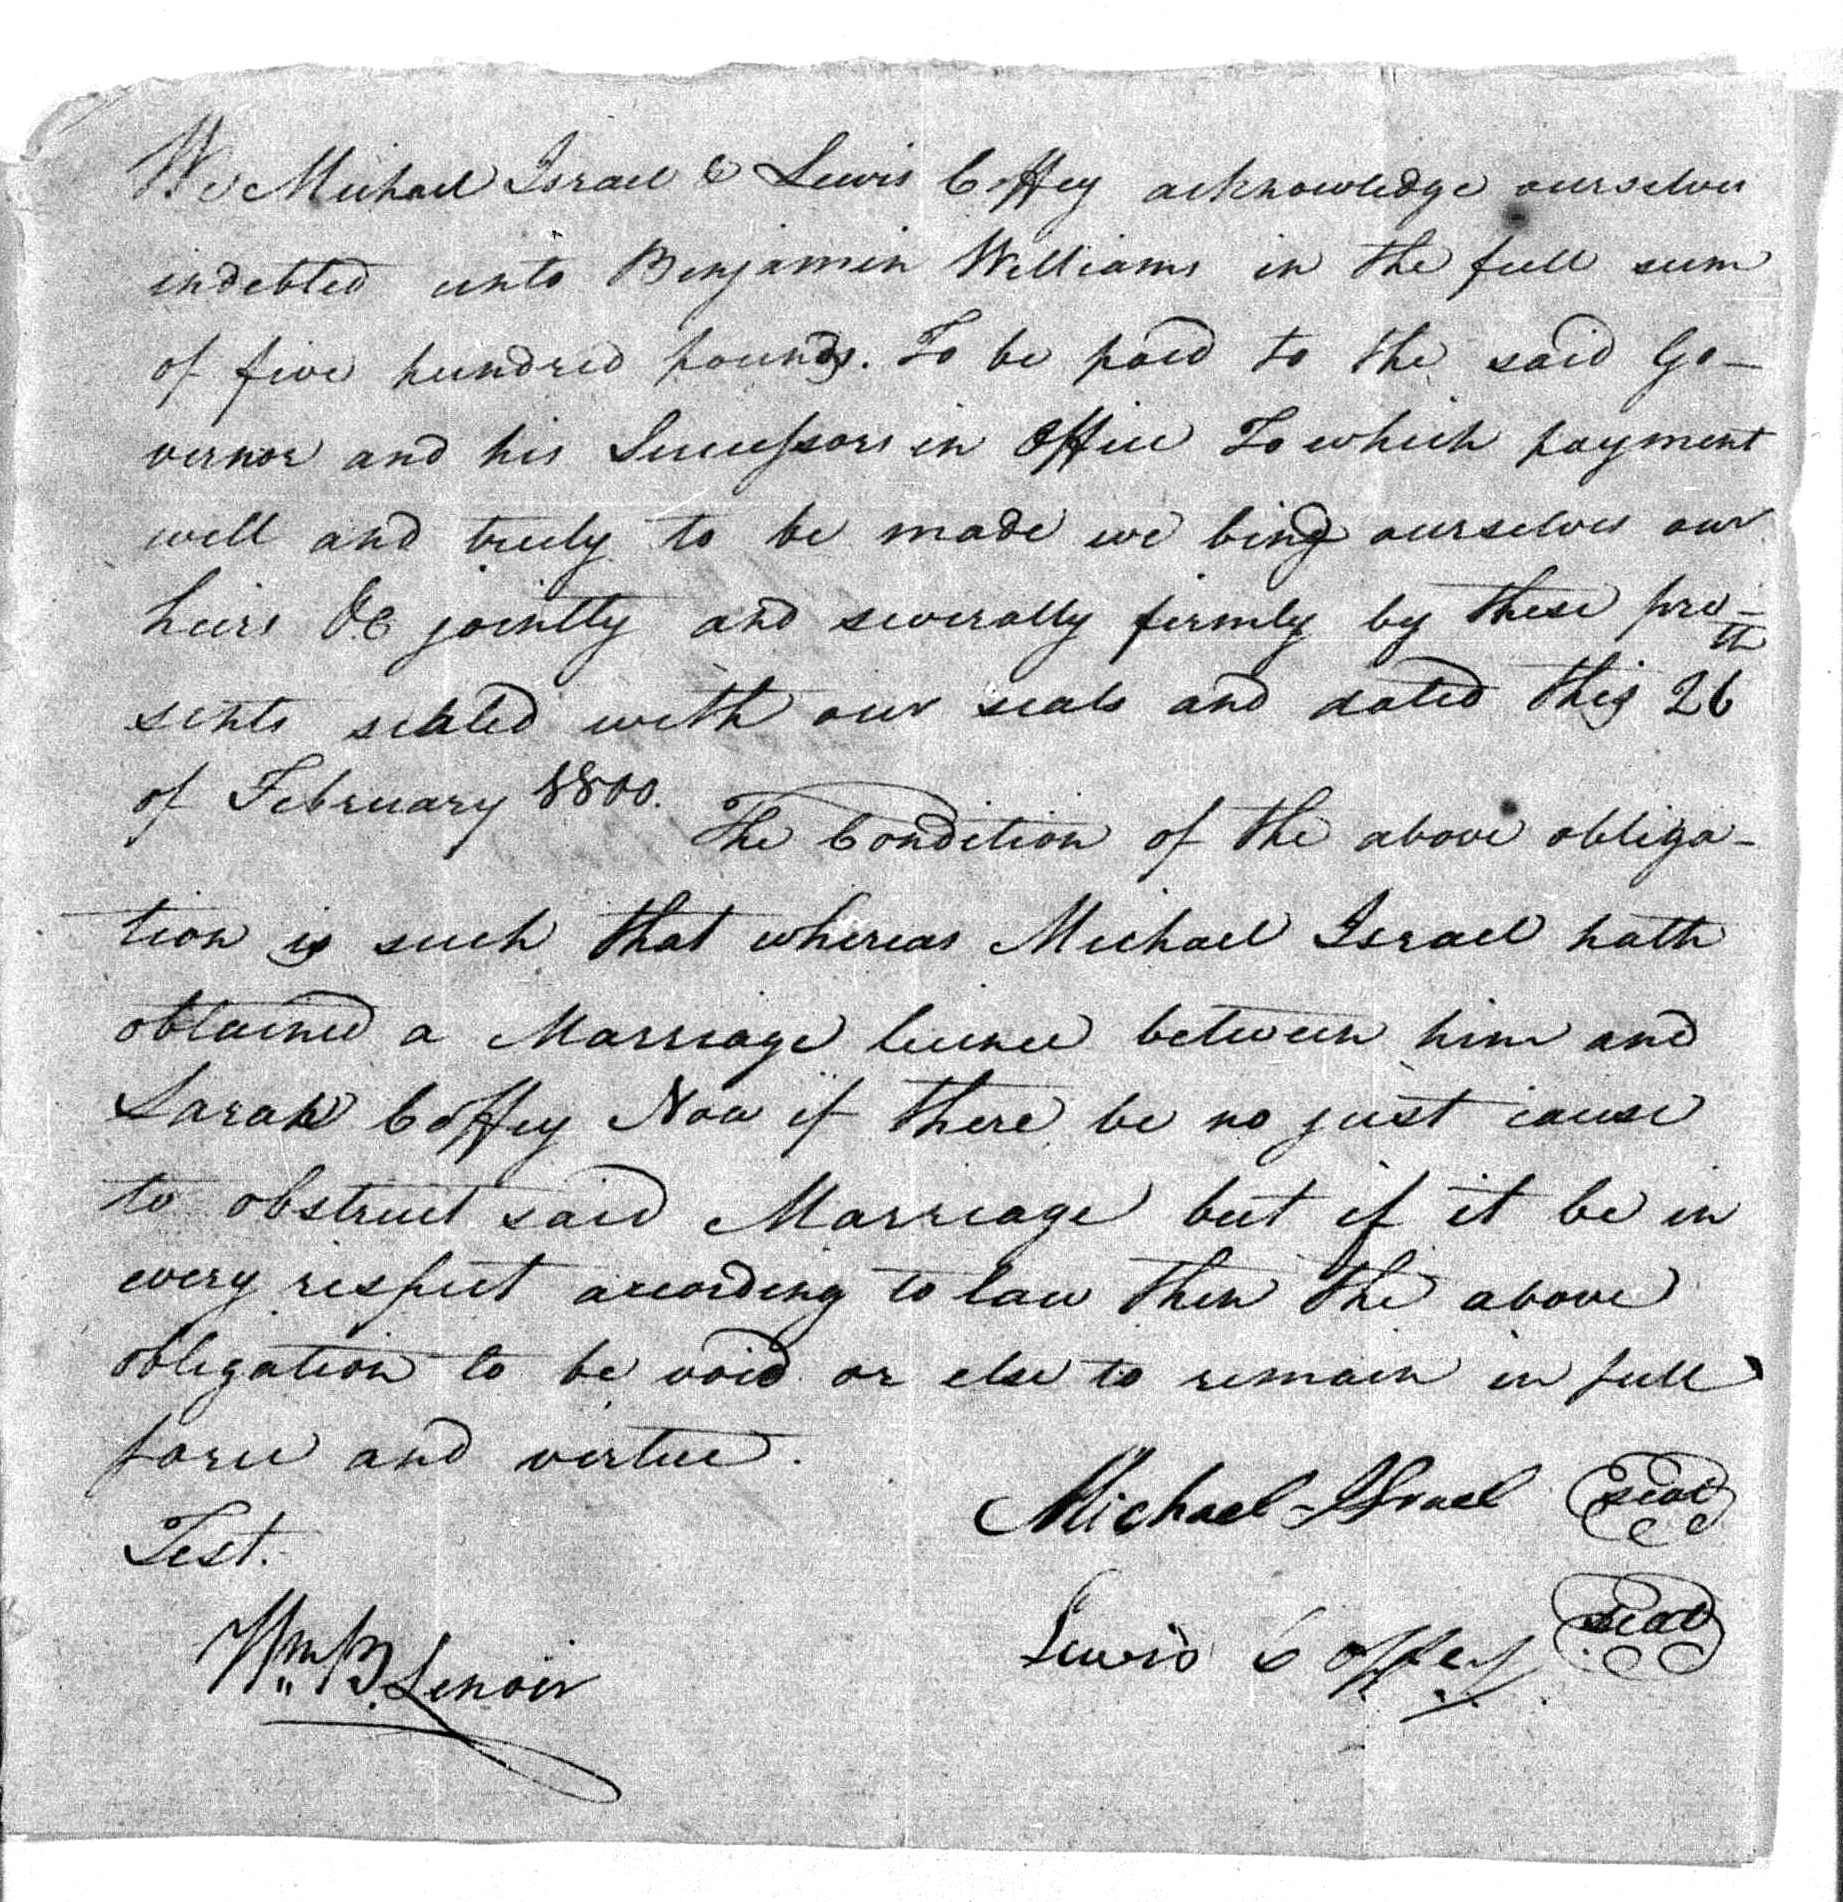 We Michael Israel & Lewis Coffey acknowledge ourselves
indebted unto Benjamin Williams in the full sum
of five hundred pounds. To be paid to the said Go-
vernor and his Successors in Office To which payment
well and truly to be made we bind ourselves our
heirs &c jointly and severally firmly by these pre-
sents sealed with our seals and dated this 26th
of February 1800. The Condition of the above obliga-
tion is such that whereas Michael Israel hath
obtained a Marriage licence between him and
Sarah Coffey Now if there be no just cause
to obstruct said Marriage but if it be in
every respect according to law then the above
obligation to be void or else to remain in full
force and virtue.
Michael Israel seal
Test.
Lewis Coffey seal
Wm B. Lenoir